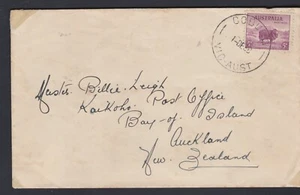 AUSTRALIA
VIC-AUST
Master Billie Leigh
Kaikohe Post Office
Bay-of Island
Auckland
New Zealand